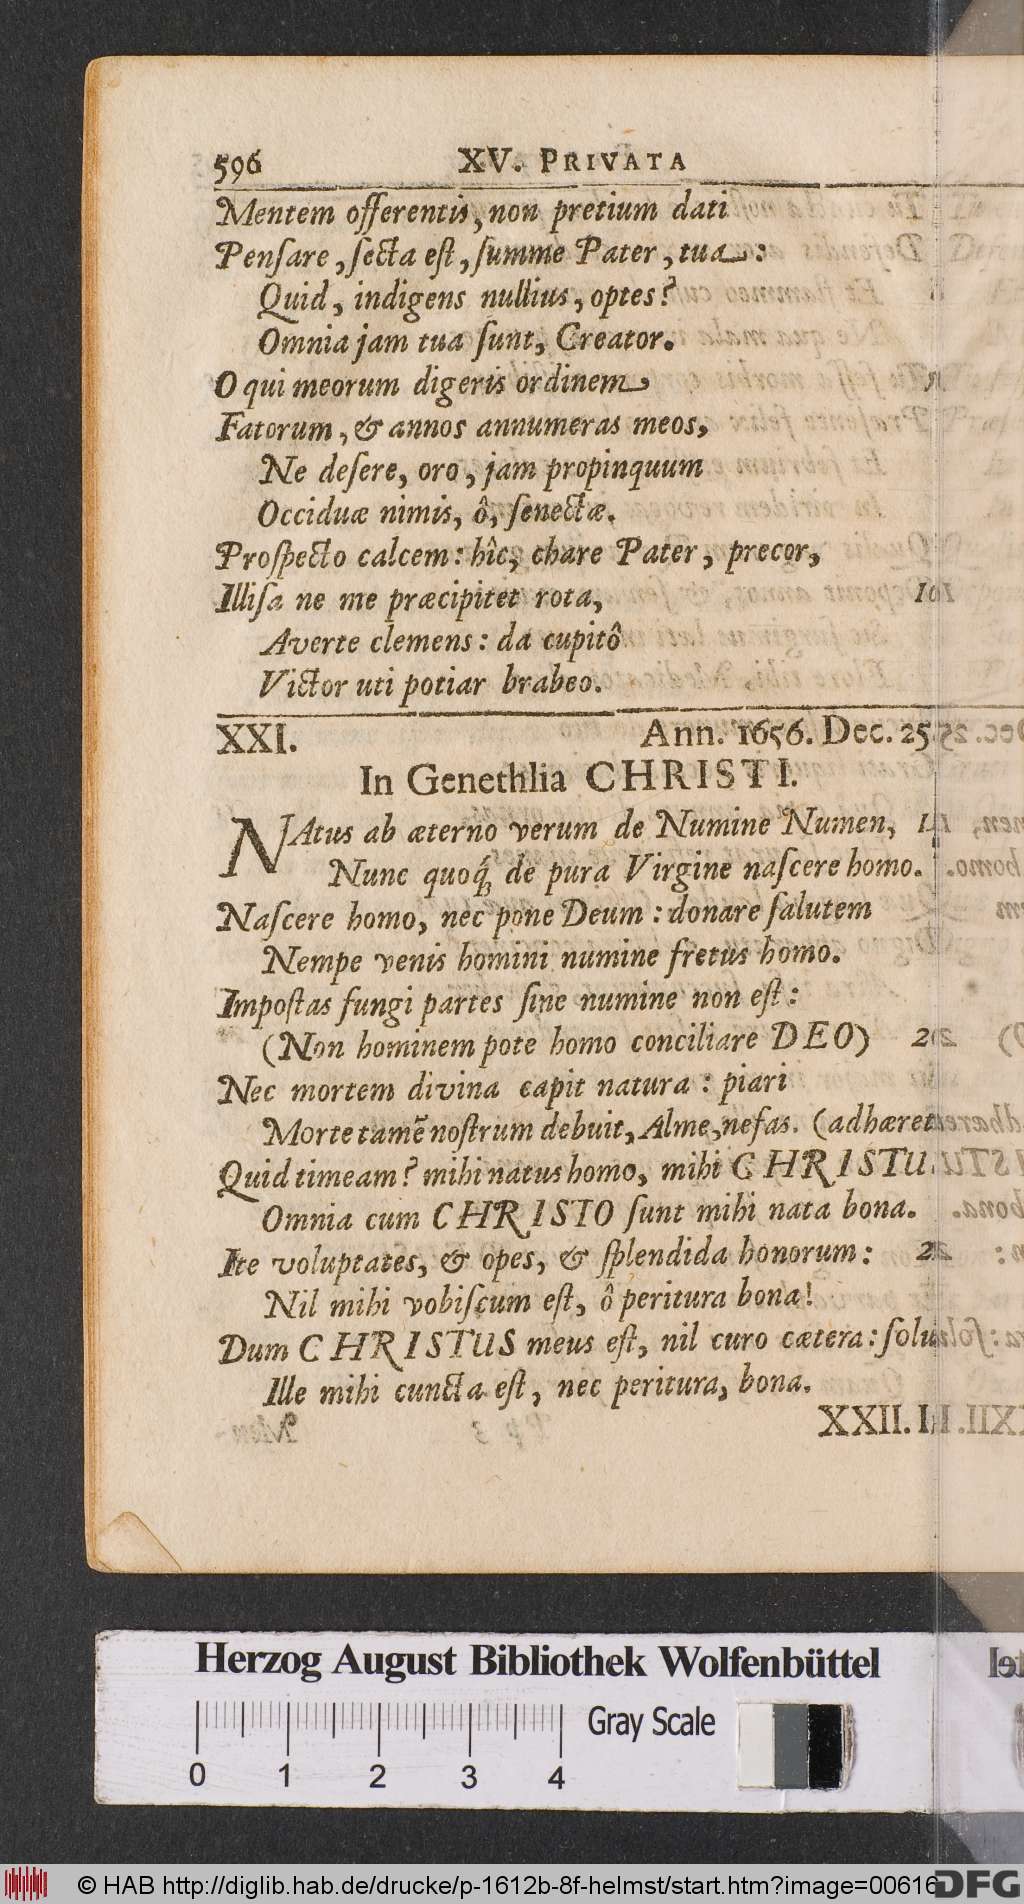 596 XV. PRIVATA
Mentem offerentis, non pretium dati
Penſare, ſecta eſt, ſumme Pater, tua:
Quid, indigens nullius, optes?
Omnia jam tua ſunt, Creator.
O qui meorum digeris ordinem
Fatorum, & annos annumeras meos,
Ne deſere, oro, jam propinquum
Occiduæ nimis, ô, ſenectæ.
Proſpecto calcem: hîc, chare Pater, precor,
Illiſa ne me præcipitet rota,
Averte clemens: da cupitô
Victor uti potiar brabeo.
XXI. Ann. 1656. Dec. 25
In Genethlia CHRISTI.
NAtus ab æterno verum de Numine Numen,
Nunc quoq́; de pura Virgine naſcere homo.
Naſcere homo, nec pone Deum: donare ſalutem
Nempe venis homini numine fretus homo.
Impoſtas fungi partes ſine numine non eſt:
(Non hominem pote homo conciliare DEO)
Nec mortem divina capit natura: piari
Morte tamẽ noſtrum debuit, Alme, nefas. (adhæret
Quid timeam? mihi natus homo, mihi CHRISTU
Omnia cum CHRISTO ſunt mihi nata bona.
Ite voluptates, & opes, & ſplendida honorum:
Nil mihi vobiſcum eſt, ô peritura bona!
Dum CHRISTUS meus eſt, nil curo cætera: ſolu
Ille mihi cuncta eſt, nec peritura, bona.
XXII.
Herzog August Bibliothek Wolfenbüttel
Gray Scale
0 1 2 3 4
© HAB http://diglib.hab.de/drucke/p-1612b-8f-helmst/start.htm?image=00616
DFG